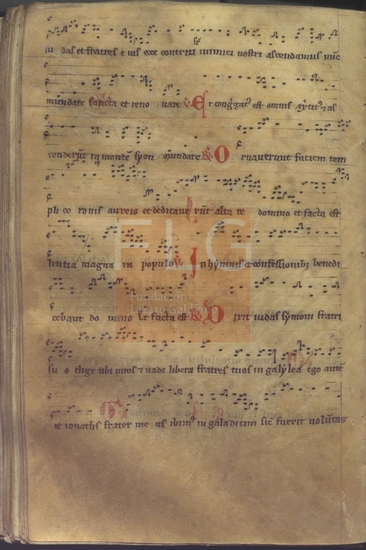 das et fratres eius ecce contriti inimici nostri ascendamus nūc
mundare sancta et reno vare V Et congˀgatˀ est omnis exercitus as
cenderūt in montē syon mundare R Ornaverunt faciem tem
pli co ronis aureis et dedicave rūt alta re domino et facta est
letitia magna in populo V In hymnis et confessionibˀ benedi
cebant do mino Et facta est R Dixit iudas symoni fratri
su o elige tibi viros et vade libera fratres tuos in galylea ego autē
et ionathas frater me us ibimˀ in galaditim sic fuerit volūtas
FLG
Fundación